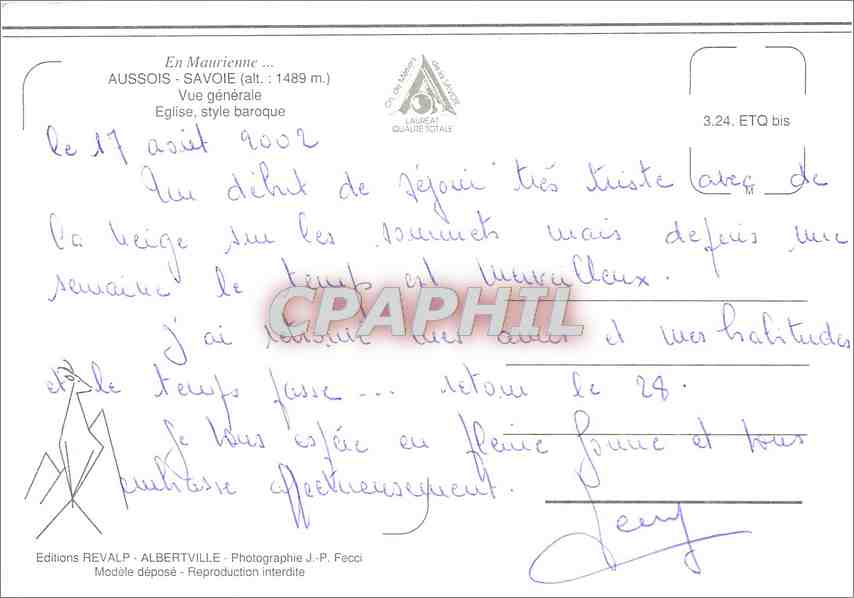 En Maurienne ...
AUSSOIS - SAVOIE (alt. : 1489 m.)
Vue générale
Eglise, style baroque
Ch. de Métiers de la SAVOIE
LAURÉAT
QUALITÉ TOTALE
3.24. ETQ bis
le 17 août 2002
Un début de séjour très triste avec de
M
la neige sur les sommets mais depuis une
semaine le temps est merveilleux.
CPAPHIL
J'ai retrouvé mes amis et mes habitudes
et le temps passe ... retour le 28.
Je vous espère en pleine forme et vous
embrasse affectueusement.
Editions REVALP - ALBERTVILLE - Photographie J.-P. Fecci
Modèle déposé - Reproduction interdite